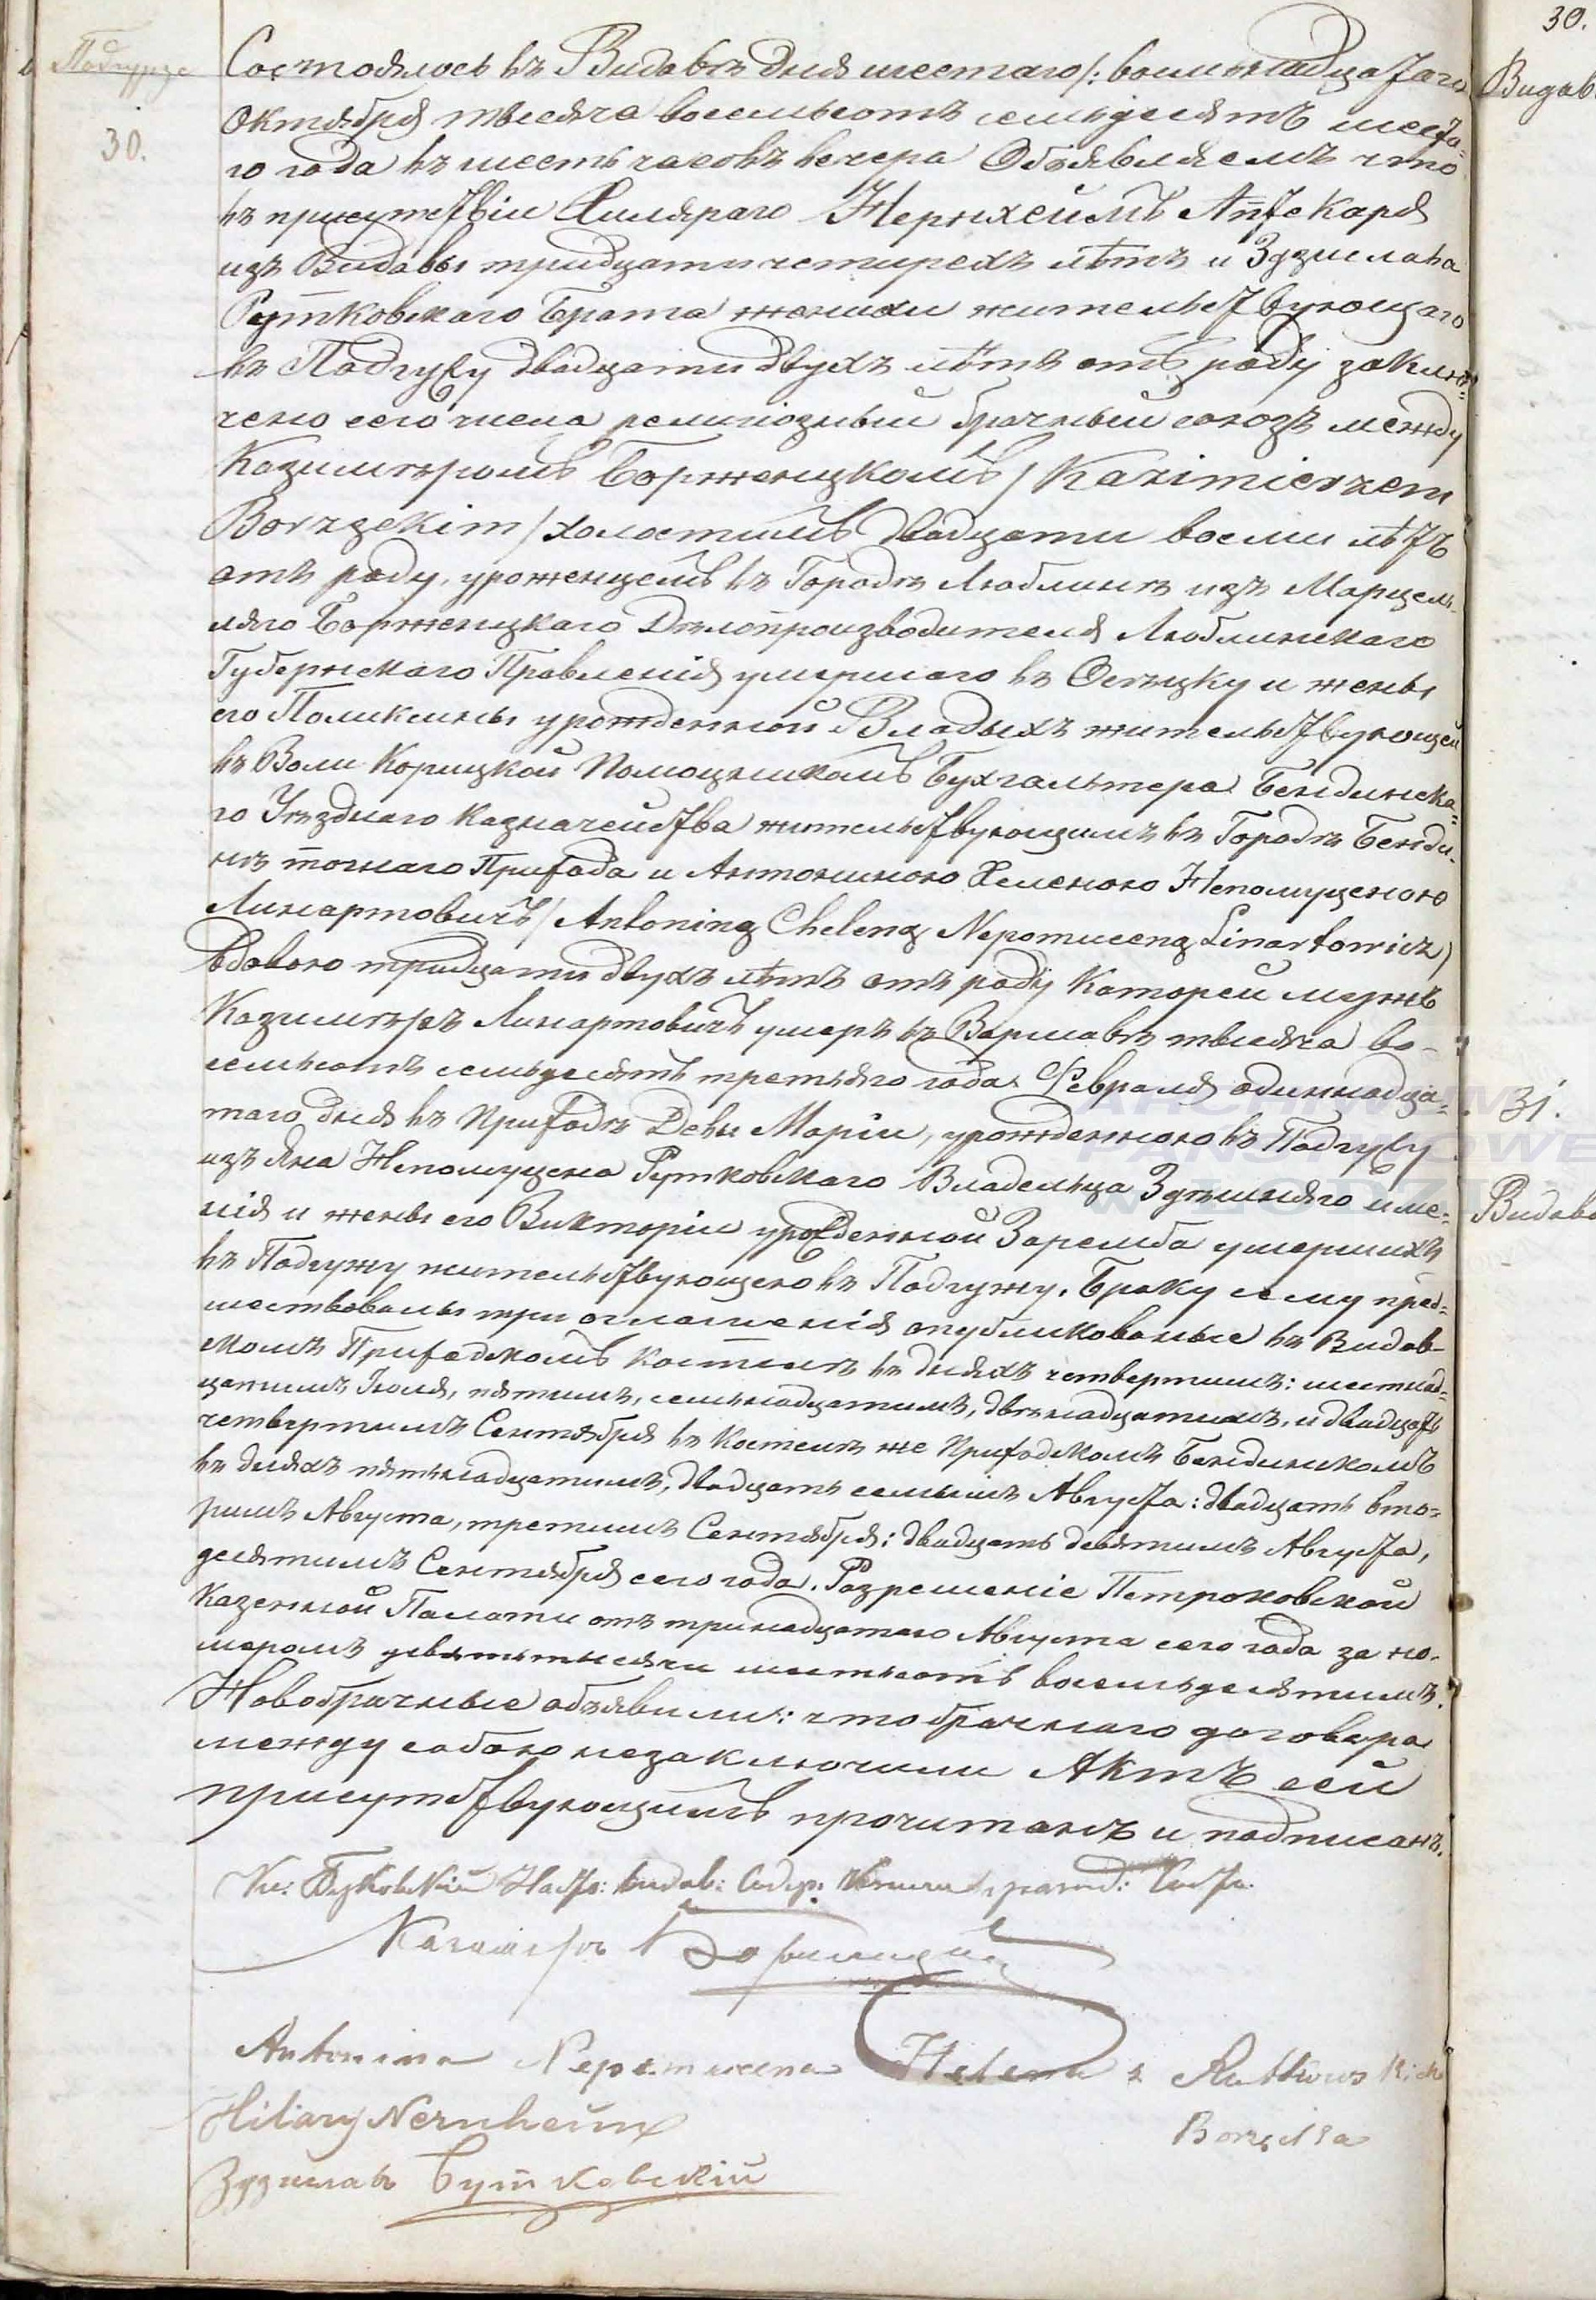 Подгурже
30.
Состоялось въ Видавѣ дня шестаго /: восемнадцатаго
Октября тысяча восемьсотъ семьдесятъ шеста=
го года въ шесть часовъ вечера Объявляемъ что
въ присутствіи Гиляраго Нернхеимъ Аптекаря
изъ Видавы тридцати четырехъ лѣтъ и Здзислава
Рутковскаго Брата женихи жительствующаго
въ Подгужу двадцати двухъ лѣтъ отъ роду заклю=
чено сего числа религіозный брачный союзъ между
Казимѣромъ Борженцкомъ / Kazimierzem
Borzęckim / холостымъ двадцати восми лѣтъ
отъ роду, уроженцемъ въ Городѣ Люблинѣ изъ Марцель-
ляго Борженцкаго Дѣлопроизводителя Люблинскаго
Губернскаго Правленія умершаго въ Осѣцку и жены
его Поликсины урожденной Владыхъ жительствующей
въ Воли Корыцкой Помощникомъ Бухгальтера Бендинска=
го Уѣзднаго Казначейства жительствующимъ въ Городѣ Бенди-
нѣ тогнаго Прихода и Антониною Хеленою Непомуценою
Линартовичъ / Antoniną Cheleną Nepomuceną Linartowicz)
вдовою тридцати двухъ лѣтъ отъ роду Которей мужъ
Казимѣръ Линартовичъ умеръ въ Варшавѣ тысяча во-
семьсотъ семьдесятъ третьяго года Февраля одиннадца=
таго дня въ Приходѣ Девы Маріи, урожденною въ Подгужу
изъ Яна Непомуцена Рутковскаго Владельца Здѣшняго име=
нія и жены его Викторіи урожденной Заремба умершихъ
въ Подгужу жительствующею въ Подгужу. Браку сему пред=
шествовалы три оглашенія опубликованые въ Видав-
скомъ Приходскомъ Костелѣ въ дняхъ четвертимъ: шестнад=
цатимъ Іюля, пятимъ, семьнадцатимъ, двѣнадцатихъ, и двадцать
четвертимъ Сентября въ Костелѣ же Приходскомъ Бендинскомъ
въ дняхъ пятьнадцатимъ, двадцать семымъ Августа: двадцать вто=
римъ Августа, третимъ Сентября: двадцать девятимъ Августа,
десятимъ Сентября сего года. Разрешеніе Петроковской
Казенной Палаты отъ тринадцатаго Августа сего года за но-
меромъ девятьтысячи шестьсотъ восемьдесятимъ.
Новобрачные объявили: что брачнаго договора
между собою незаключили Актъ сей
присутствующимъ прочитанъ и подписанъ.
Казимѣръ Борженцкій
Antonina Nepomucena Helena z Rutkowskich
Borzęcka
Hilary Nernheim
Здзиславъ Рутковскій
30.
Видав
31.
Видава
ARCHIWUM
PAŃSTWOWE
W ŁODZI